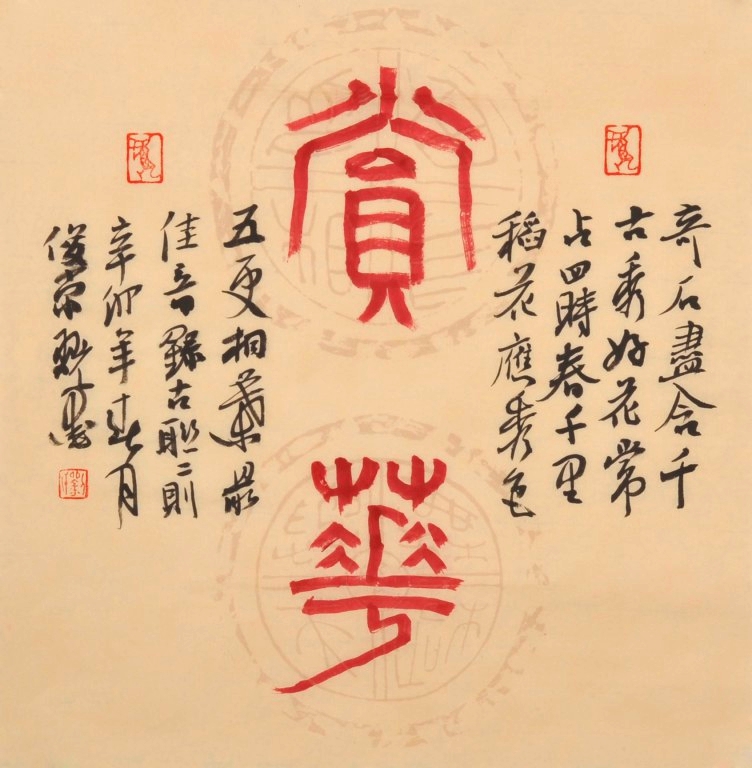 奇石盡含千
古秀好花常
占四時春千里
稻花應秀色
賞華
五更桐葉最
佳音錄古聯二則
辛卯年春月
俊